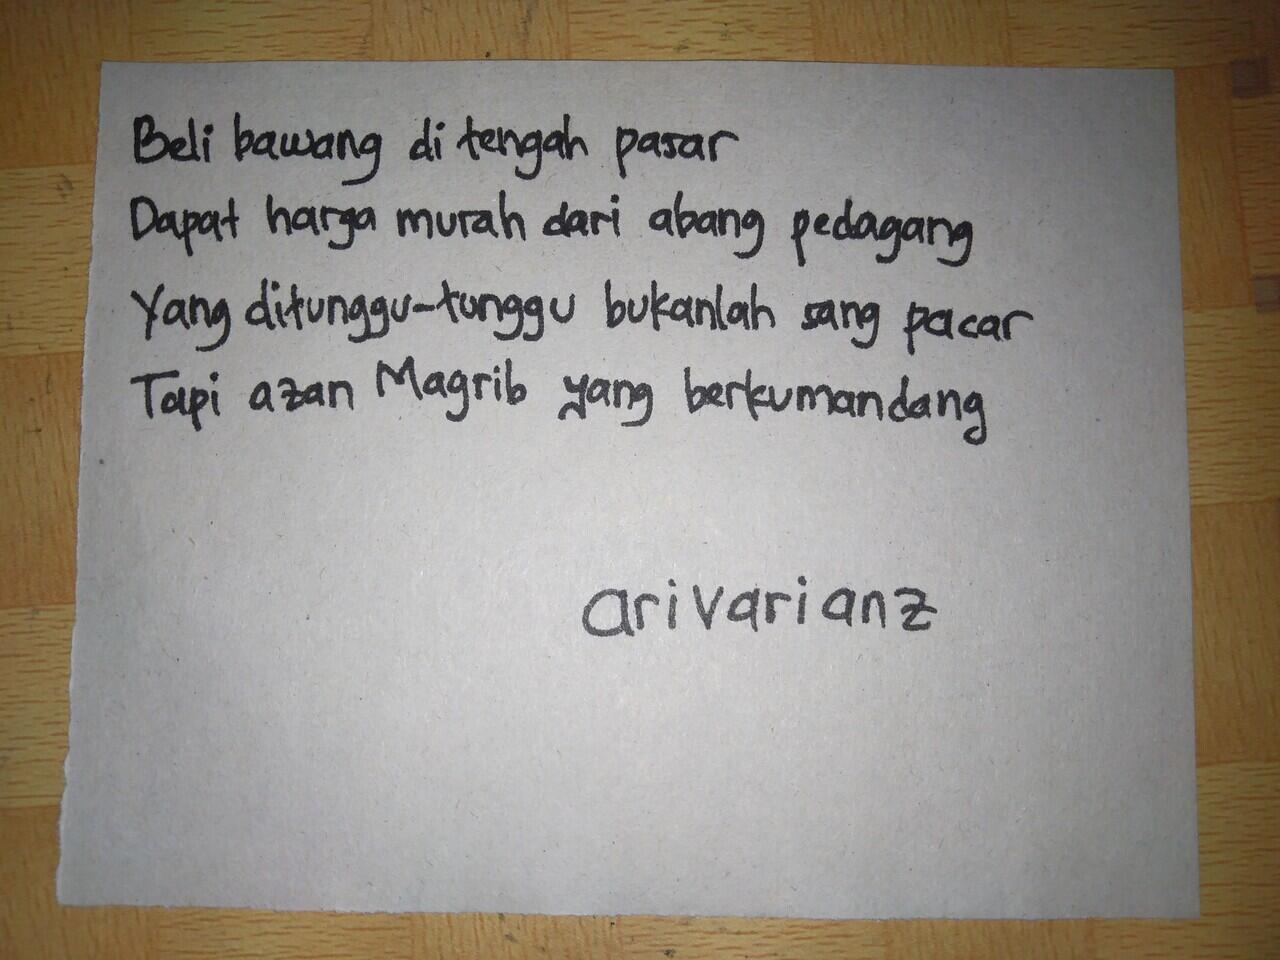 Beli bawang di tengah pasar
Dapat harga murah dari abang pedagang
Yang ditunggu-tunggu bukanlah sang pacar
Tapi azan Magrib yang berkumandang
arivarianz